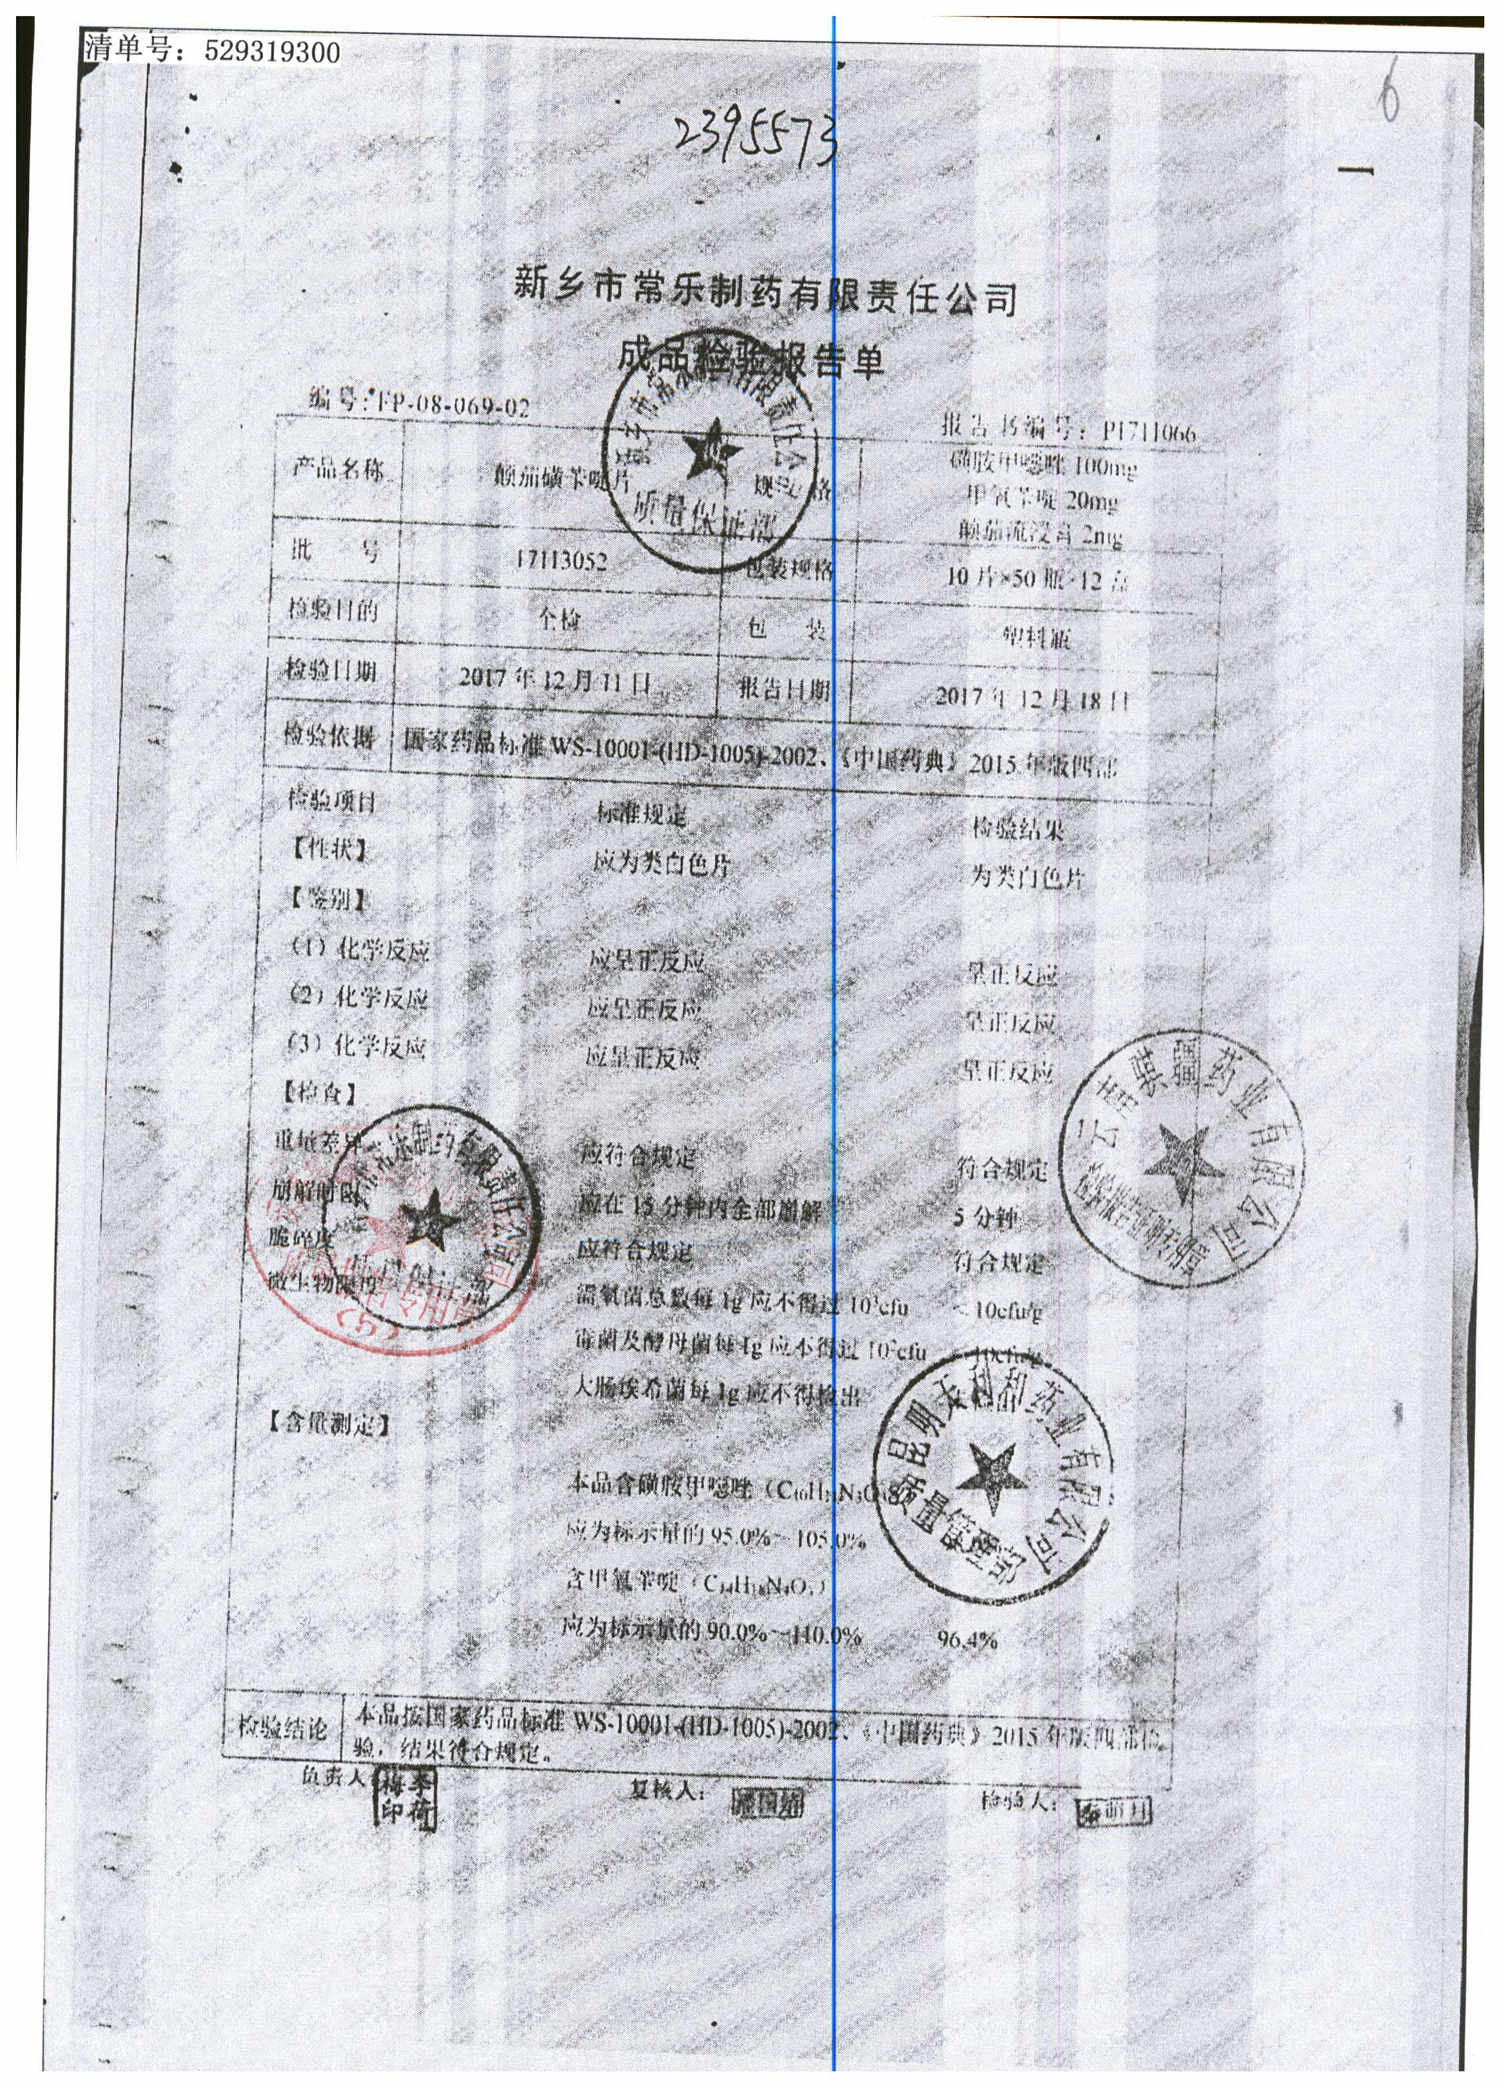 清单号：529319300
6
2395573
新乡市常乐制药有限责任公司
成品检验报告单
编号：FP-08-069-02
报告书编号：P1711066
产品名称 颠茄磺苄啶片 规 格 磺胺甲噁唑 100mg
甲氧苄啶 20mg
颠茄流浸膏 2mg
批 号 17113052 包装规格 10 片×50 瓶×12 盒
检验目的 全检 包 装 塑料瓶
检验日期 2017 年 12 月 11 日 报告日期 2017 年 12 月 18 日
检验依据 国家药品标准 WS-10001-(HD-1005)-2002、《中国药典》2015 年版四部
检验项目 标准规定 检验结果
【性状】 应为类白色片 为类白色片
【鉴别】
（1）化学反应 应呈正反应 呈正反应
（2）化学反应 应呈正反应 呈正反应
（3）化学反应 应呈正反应 呈正反应
【检食】
重量差异 应符合规定 符合规定
崩解时限 应在 15 分钟内全部崩解 5 分钟
脆碎度 应符合规定 符合规定
微生物限度 需氧菌总数每 1g 应不得过 10³cfu <10cfu/g
霉菌及酵母菌每 1g 应不得过 10²cfu 10cfu/g
大肠埃希菌每 1g 应不得检出
【含量测定】
本品含磺胺甲噁唑
应为标示量的 95.0%～105.0%
含甲氧苄啶（C₁₄H₁₈N₄O₃）
应为标示量的 90.0%～110.0% 96.4%
检验结论 本品按国家药品标准 WS-10001-(HD-1005)-2002、《中国药典》2015 年版四部检
验，结果符合规定。
负责人 李荷梅印 复核人： 检验人：
新乡市常乐制药有限责任公司
质量保证部
常乐制药有限责任公司
专用章
(5)
云南骐疆药业有限公司
检验报告证明专用章
昆明天利和药业有限公司
质量管理部